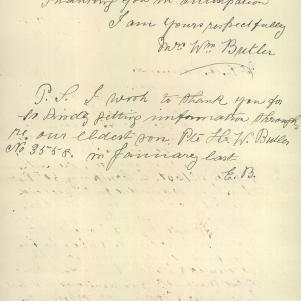 Thanking you in anticipation
I am yours respectfully
Mrs Wm Butler
P.S. I wish to thank you for
so kindly getting information through
re, our eldest son Pte H. W. Butler
No 3558. in January last
E. B.